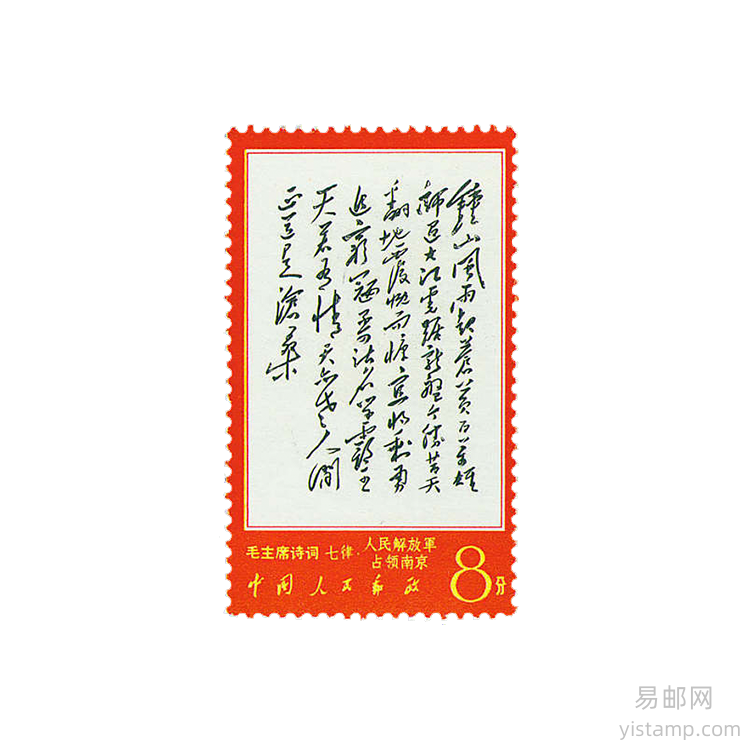 鍾山風雨起蒼黃百萬雄
師過大江虎踞龍盤今勝昔天
翻地覆慨而慷宜將剩勇
追窮寇不可沽名學霸王
天若有情天亦老人間
正道是滄桑
毛主席诗词 七律·人民解放軍
占领南京
中国人民邮政
8分
易邮网
yistamp.com